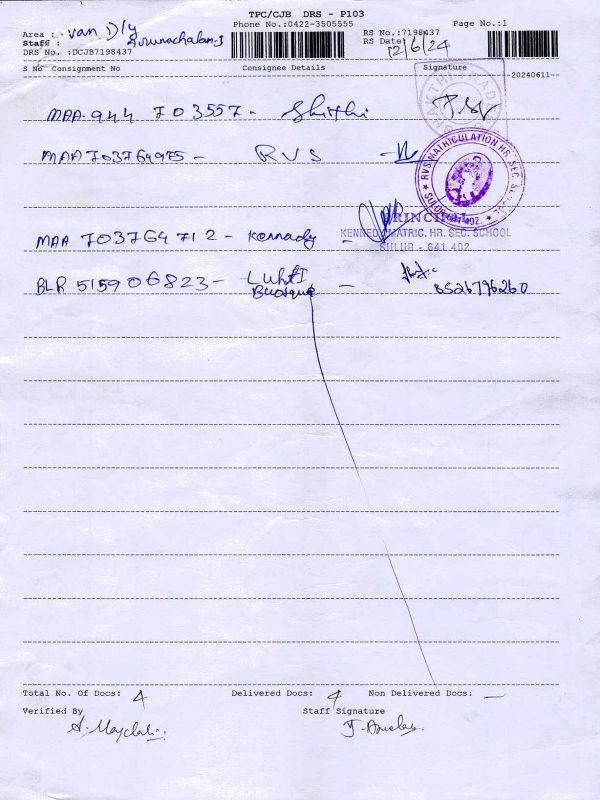 TPC/CJB DRS - P103
Phone No.:0422-3505555 Page No.:1
Area : van Dly
Staff : Arunachalam.J
DRS No. :DCJB7198437
RS No.:7198437
RS Date: 12/6/24
S No Consignment No Consignee Details Signature
--20240611--
MAA 944 703557 - Shithi
MAA703764975 - RVS
RVS MATRICULATION HR. SEC. SULUR-641 402.
MAA 703764712 - Kennady -
PRINCIPAL
KENNEDY MATRIC. HR. SEC. SCHOOL
SULUR - 641 402
BLR 515906823 - -
8526796260
Total No. Of Docs: 4 Delivered Docs: 4 Non Delivered Docs: -
Verified By Staff Signature